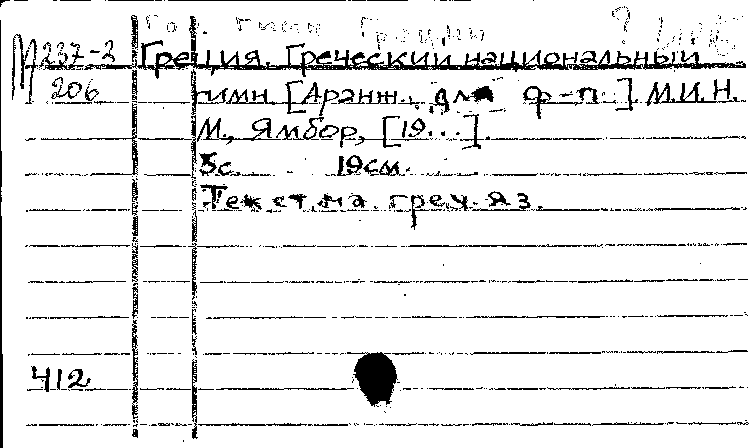 Гос. гимн Греции ?
М 237-2 Греция. Греческий национальный
206 гимн. [Аранж. для ф-п.]. М.И.Н.
М., Ямбор, [19...].
3с. 19см.
Текст на греч. яз.
412